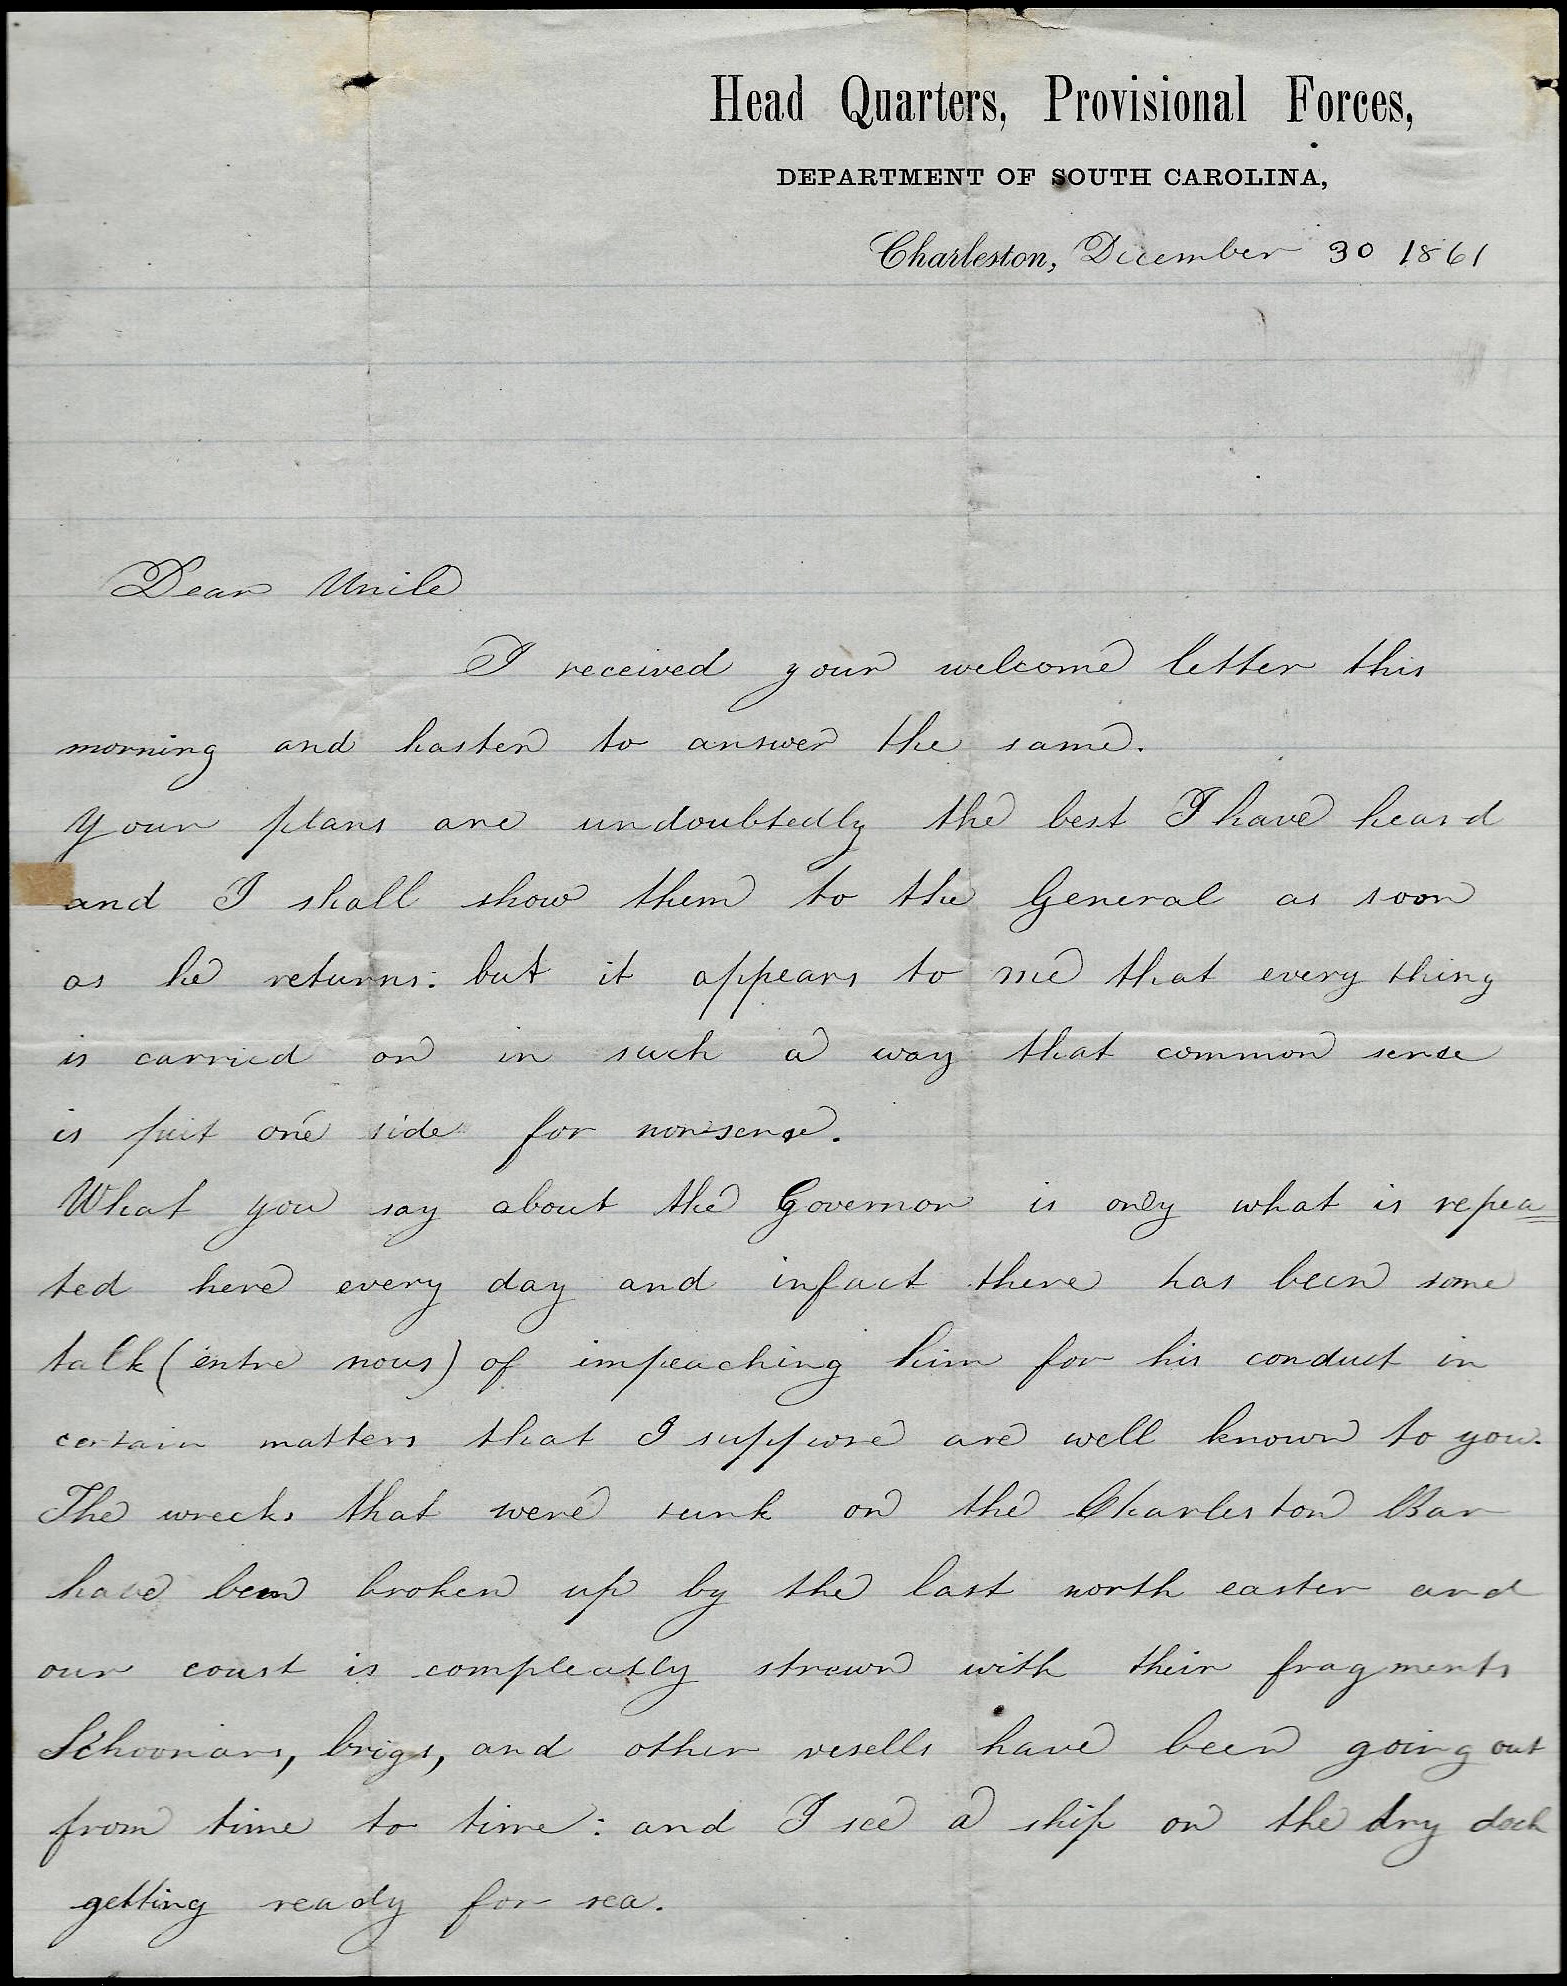 Head Quarters, Provisional Forces,
DEPARTMENT OF SOUTH CAROLINA,
Charleston, December 30 1861
Dear Uncle
I received your welcome letter this
morning and hasten to answer the same.
Your plans are undoubtedly the best I have heard
and I shall show them to the General as soon
as he returns: but it appears to me that every thing
is carried on in such a way that common sense
is put one side for nonsense.
What you say about the Governor is only what is repea=
ted here every day and infact there has been some
talk (entre nous) of impeaching him for his conduct in
certain matters that I suppose are well known to you.
The wrecks that were sunk on the Charleston Bar
have been broken up by the last north easter and
our coast is compleatly strewn with their fragments
Schoonars, brigs, and other vesells have been going out
from time to time: and I see a ship on the dry dock
getting ready for sea.